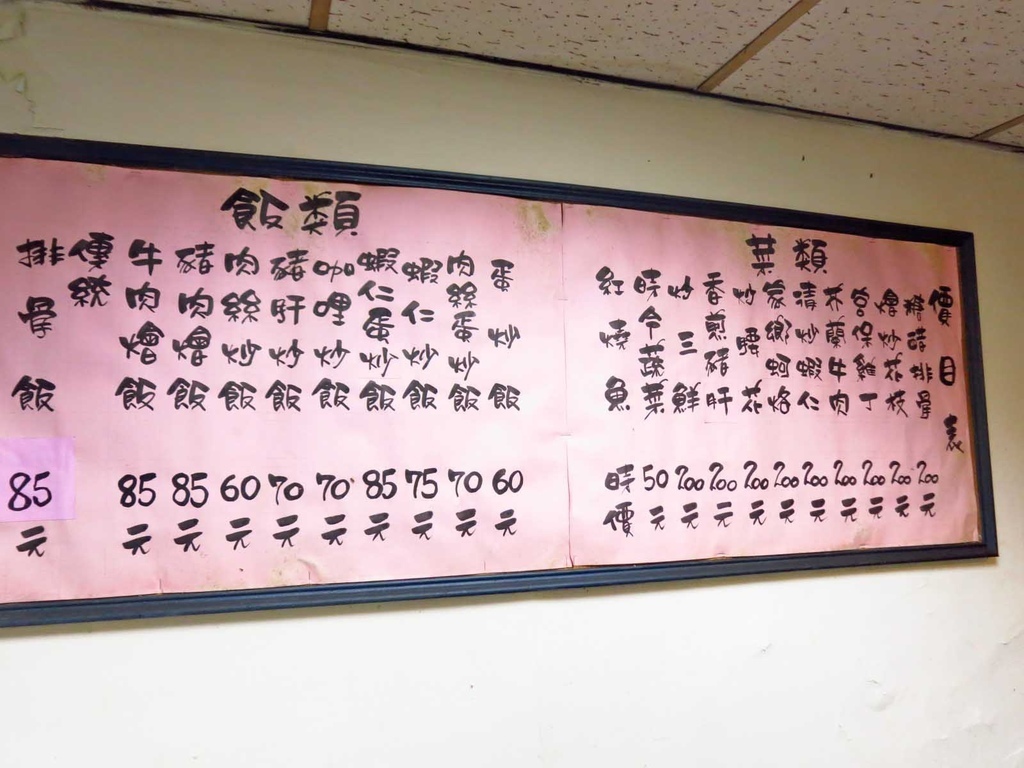 價目表
菜類
糖醋排骨 200元
燴炒花枝 200元
宮保雞丁 200元
芥蘭牛肉 200元
清炒蝦仁 200元
客家鄉蚵烙 200元
炒腰花 200元
香煎豬肝 200元
炒三鮮 200元
時令蔬菜 50元
紅燒魚 時價
飯類
蛋炒飯 60元
肉絲蛋炒飯 70元
蝦仁炒飯 75元
蝦仁蛋炒飯 85元
咖哩炒飯 70元
豬肝炒飯 70元
肉絲炒飯 60元
豬肉燴飯 85元
牛肉燴飯 85元
傳統排骨飯 85元